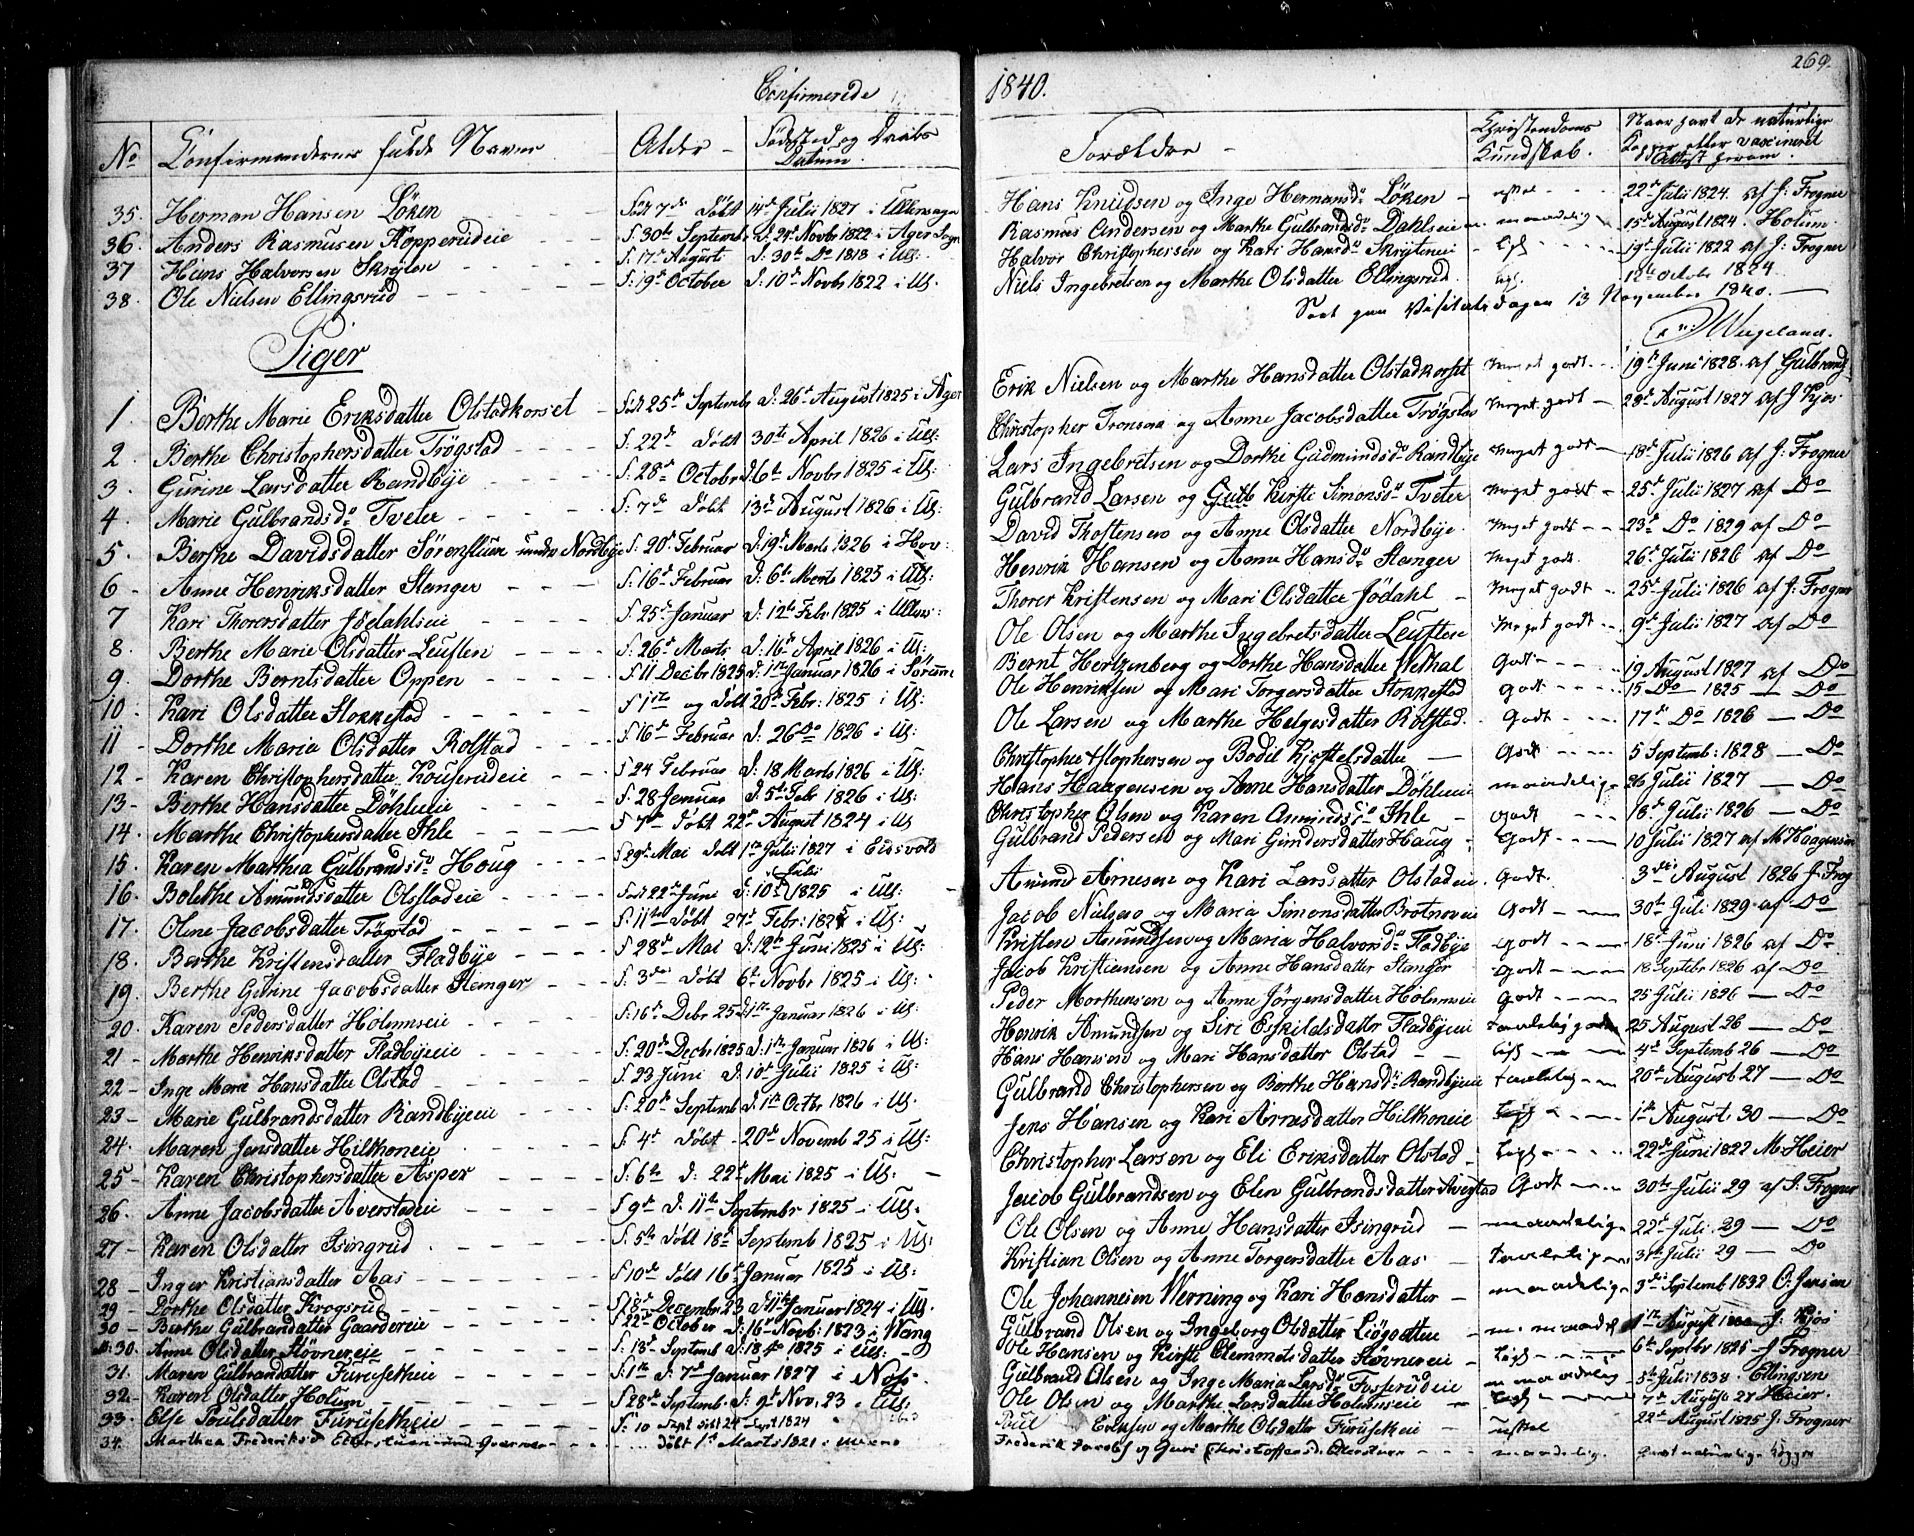 269.
Confirmerede 1840.
No Confirmandernes fulde Navne Alder Fødested og Daabs Datum. Forældre Christendoms Kundskab. Naar havt de naturlige Kopper eller vaccineret
35. Herman Hansen Løken Født 7de Døbt 14d Julii 1827 i Ullensager Hans Knudsen og Inge Hermansdr Løken 22d Julii 1824 af J: Frogner
36. Anders Rasmusen Kopperudeie F: 30te Septembr D: 24d Novbr 1822 i Ager Sogn Rasmus Andersen og Marthe Gulbrandsdr Dahleie maadelig 15de August 1824 Holum
37 Hans Halvorsen Skryten F: 17d Augusti D: 30te Do 1818 i Ul: Halvor Christophersen og Kari Hansdr Skryteneie 19d Julii 1822 af J: Frogner
38. Ole Nielsen Ellingsrud F: 19d October D: 10de Novbr 1822 i Ul: Niels Ingebretsen og Marthe Olsdatter Ellingsrud. 12te Octobr 1824
Seet paa Visitatsdagen 13 November 1840.
Wegeland.
Piger
1 Berthe Marie Eriksdatter Olstadkorset Født 25de Septembr D. 26d August 1825 i Ager Erik Nielsen og Marthe Hansdatter Olstadkorset Meget godt 19de Juni 1828 af Gulbrand
2 Berthe Christophersdatter Trøgstad F: 22de Døbt 30te April 1826 i Ul: Christopher Tronsen og Anne Jacobsdatter Trøgstad Meget godt 28de August 1827 af J Kjos
3 Gurine Larsdatter Randbye F: 28de October D 6te Novbr 1825 i Ul: Lars Ingebretsen og Dorthe Gudmundsdr Randbye Meget godt 18de Julii 1826 af J: Frogner
4 Marie Gulbrandsdr Tveter F: 7de Døbt 13de August 1826 i Ul: Gulbrand Larsen og Kirsti Simonsdr Tveter Meget godt 25de Julii 1827 af Do
5 Berthe Davidsdatter Sørenstuen under Nordbye F: 20de Februar D: 19d Marts 1826 i Hov: David Thostensen og Anne Olsdatter Nordbye. Meget godt 23de Do 1829 af Do
6 Anne Henriksdatter Stenger F: 16d Februar D: 6te Marts 1825 i Ul: Henrik Hansen og Anne Hansdr Stanger Meget godt. 26de Julii 1826 af Do
7 Kari Thorersdatter Jødahlseie F: 25de Januar D: 12te Febr 1825 i Ullens: Thorer Kristensen og Mari Olsdatter Jødahl Meget godt 25d Julii 1826 af J: Frogner
8 Berthe Marie Olsdatter Leusten F: 26de Marts D: 16de April 1826 i Ul: Ole Olsen og Marthe Ingebretsdatter Leusten Meget godt 9de Julii 1827 af Do
9. Dorthe Berntsdatter Oppen F 11 Decbr 1825 D: 1ste Januar 1826 i Sørum Bernt Hertzenberg og Dorthe Hansdatter Vethal Godt 19 August 1827 af Do
10 Kari Olsdatter Stokkestad F 1ste og Døbt 20de Febr: 1825 i Ul: Ole Henriksen og Mari Torgersdatter Stokkestad Godt 15 Do 1825 Do
11 Dorthe Maria Olsdatter Rolstad F 16de Februar D: 26 Do 1826 i Ul: Ole Larsen og Marthe Helgesdatter Rolstad. Godt 17de Do 1826 Do
12 Karen Christophersdatter Kouserudeie F 24 Februar D: 18 Marts 1826 i Ul: Christopher Christophersen og Bodil Kjostelsdatter Godt 5 Septemb: 1828 Do
13 Berthe Hansdatter Døhleeie F: 28 Januar D: 5te Febr 1826 i Ul: Hans Haagensen og Anne Hansdatter Døhleeie maadelig 26 Julii 1827 Do
14. Marthe Christophersdatter Ihle F 7de Døbt 22de August 1824 i Ul Christopher Olsen og Karen Amundsdr Ihle Godt 18d Julii 1826 Do
15. Karen Marthea Gulbrandsdr Houg F 29d Mai Døbt 1ste Julii 1827 i Eidsvold Gulbrand Pedersen og Mari Gundersdatter Haug Godt 10 Julii 1827 af M: Haagensen
16 Bolethe Amundsdatter Olstadeie Født 22de Juni D: 10de Julii 1825 i Ul: Amund Arnesen og Kari Larsdatter Olstadeie. Godt. 3die August 1826 J Frog
17. Oline Jacobsdatter Trøgstad F: 11te Døbt 27d Febr: 1825 i Ul: Jacob Nielsen og Maria Simonsdatter Brotnoeie Godt 30te Juli 1829 af Do
18. Berthe Kristensdatter Fladbye F 28de Mai D: 12te Juni 1825 i Ul: Kristen Amundsen og Maria Halvorsdr Fladbye Godt 18d Juni 1826 af Do
19) Berthe Gurine Jacobsdatter Stenger F: 3die Døbt 6te Novbr 1825 i Ul: Jacob Kristiansen og Anne Hansdatter Stanger Godt 18 Septbr 1826 af Do
20. Karen Pedersdatter Holumseie F: 16de Debr 25 D: 1ste Januar 1826 i Ul: Peder Morthensen og Anne Jørgensdatter Holumseie Godt 25 Julii 1826 Do
21 Marthe Henriksdatter Fladbyeeie F: 20de Decbr 1825 D: 1ste Januar 1826 i Ul: Henrik Amundsen og Siri Eskildsdatter Fladbyeeie Taaelelig godt 25 August 26 Do
22 Inge Marie Hansdatter Olstad F. 23 Juni D: 10de Julii 1825 i Ul: Hans Hansen og Mari Hansdatter Olstad 4d Septemb 26 Do
23 Marie Gulbrandsdatter Randbyeeie F: 20de Septemb D: 1ste Octbr 1826 i Ul: Gulbrand Christophersen og Berthe Hansdr Randbyeeie taalelig 20de August 27 Do
24. Maren Jensdatter Hilkoneie F: 4d Døbt 20de Novemb 25 i Ul: Jens Hansen og Kari Arnesdatter Hilkoneie 1ste August 30 Do
25 Karen Christophersdatter Asper F: 6te D: 22de Mai 1825 i Ul: Christopher Larsen og Eli Eriksdatter Olstad 22de Juni 1822 M: Heier
26. Anne Jacobsdatter Averstadeie F 9de D. 11te Septembr 1825 i Ul. Jacob Gulbrandsen og Elen Gulbrandsdatter Avestad Godt 30te Julii 29 af J. Frogner
27 Karen Olsdatter Isingrud F: 5te Døbt 18d Septemb 1825 i Ul: Ole Olsen og Anne Hansdatter Isingrud maadelig 22de Juli 29 Do
28 Inger Kristiansdatter Aas F 10de Døbt 16d Januar 1825 i Ul: Kristian Olsen og Anne Torgersdatter Aas taalelig 31te Julii 29 Do
29 Dorthe Olsdatter Krogsrud F 28de Decembr 23 D: 11te Januar 1824 i Ul. Ole Johannesen Werning og Kari Hansdatter maadelig 3die Septemb 1832 O: Jensen
30 Berthe Gulbrandsdatter Gaardereie F 22de October D: 16de Novb: 1823 i Wang Gulbrand Olsen og Ingeborg Olsdatter m. maadel 1ste August J: Kjos
30. Anne Olsdatter Støvnereie F: 13de Septemb D: 18 do 1825 i Ul: Ole Hansen og Kirsti Clemmetsdatter Støvnereie 6te Septbr 1825 J Frogner
31. Maren Gulbrandatter Furusetheie F 1ste D: 7de Januar 1827 i Næs. Gulbrand Olsen og Inge Maria Larsdr Fosserudeie m maadelig 5te Julii 1838 Ellingsen
32. Karen Olsdatter Holum F 28de Septemb: D: 9d Nov: 23 i Ul: Ole Olsen og Marthe Larsdatter Holmseie 7de August 27 Heier
33. Else Poulsdatter Furusetheie F: 10 Sept Døbt 24 Sept 1824 Poul Evensen og Marthe Olsdatter Furusetheie usel 22de August 1825 J: Frogner
34. Marthea Frederiksd Døbt 1ste Marts 1821 i Frederik Jacobs og Guri Christoffersd: maadelig. havt naturlige Kopper